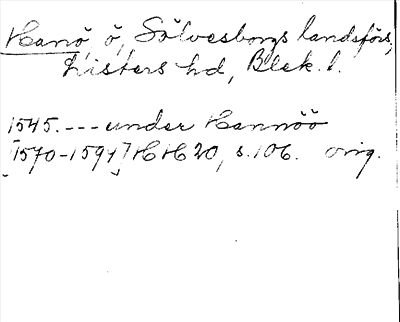 Hanö, ö, Sölvesborgs landsförs,
Listers hd, Blek. l.
1545. --- under Hannöö
[1570-1591] HH 20, s. 106. orig.